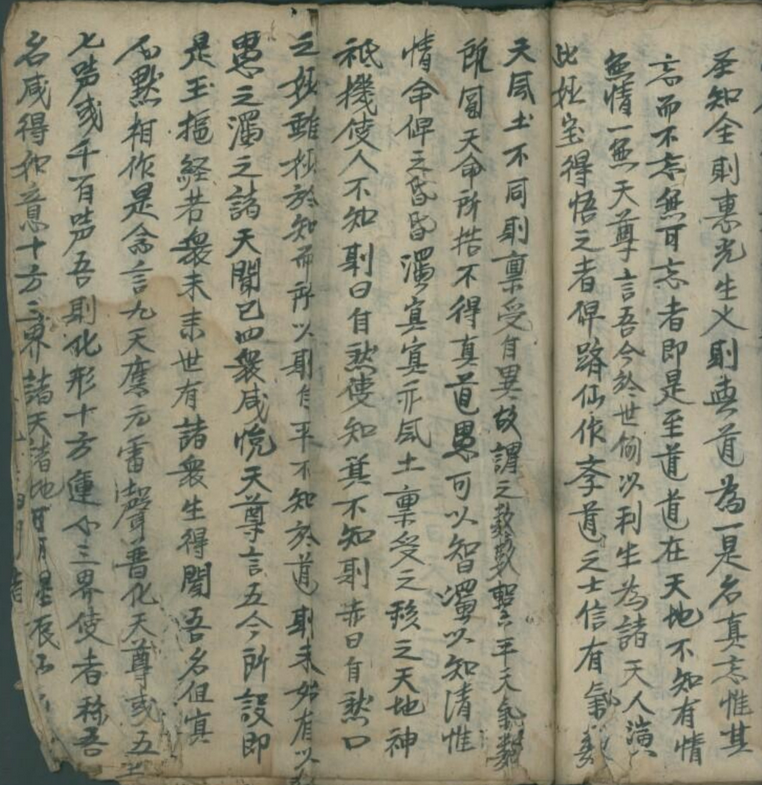 圣知全則惠光生乂則與道為一是名真忘惟其
忘而不忘無可忘者即是至道道在天地不知有情
無情一無天尊言吾今於世何以利生為諸天人演
此極宝得悟之者俾路仙作李道之士信有氣数
天風土不同則稟受自異故謂之数数繫乎天氣数
所囿天命所梏不得真道愚可以智濁以知清惟
情命俾之昏昏濁冥冥亦風土稟受之移之天地神
祇機使人不知則曰自然使知其不知則亦曰自然口
之极雖极於知而所以則自平不知於道則未始有以
愚之濁之諸天聞已四衆咸悦天尊言五今所設即
是玉樞経若衆未来世有諸衆生得聞吾名但冥
心默相作是念言九天應元雷聲普化天尊或五
七声或千百声吾則化形十方運心三界使者称吾
名咸得如意十方三界諸天諸地日月星辰